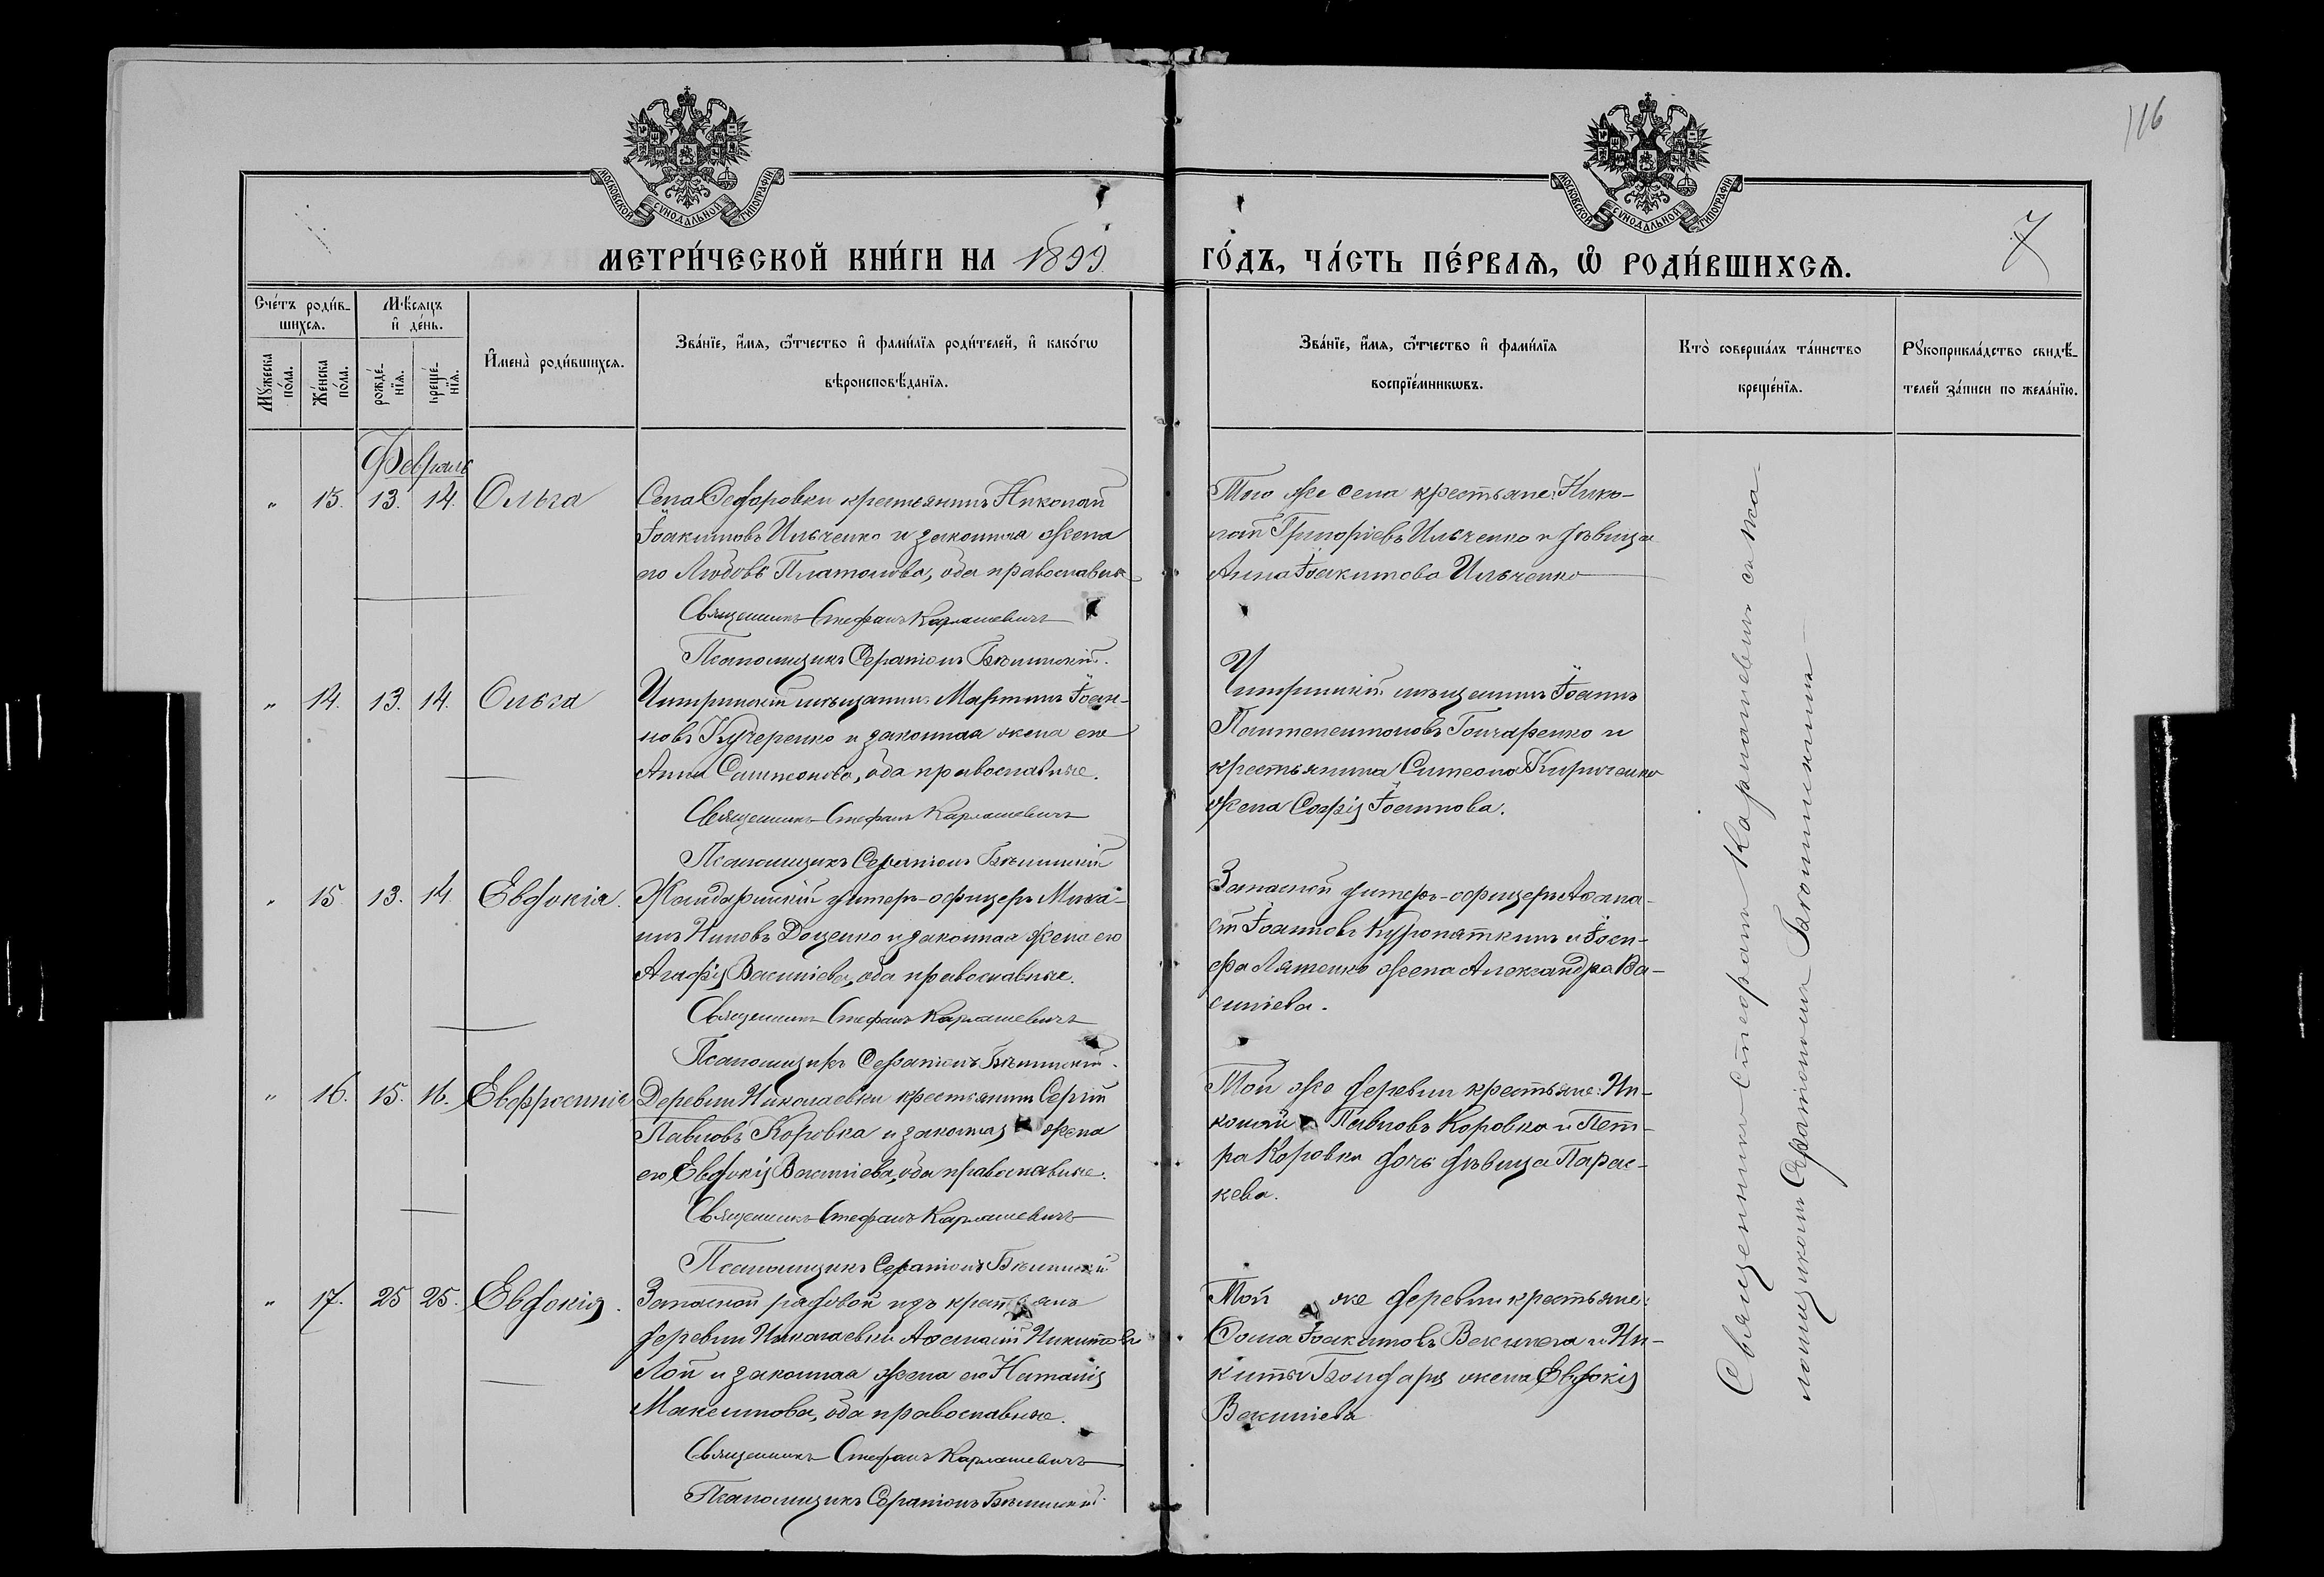 116
МОСКОВСКОЙ СѴНОДАЛЬНОЙ ТИПОГРАФІИ
МОСКОВСКОЙ СѴНОДАЛЬНОЙ ТИПОГРАФІИ
МЕТРИ́ЧЕСКОЙ КНИ́ГИ НА 1899
ГО́ДЪ, ЧА́СТЬ ПЕ́РВАѦ, Ѡ҆ РОДИ́ВШИХСѦ.
7
Сче́тъ роди́в-
шихсѧ.
Мѣ́сѧцъ
и҆ де́нь.
Мꙋ́жеска
по́ла.
Же́нска
по́ла.
рожде́-
нїѧ.
креще́-
нїѧ.
И҆мена̀ роди́вшихсѧ.
Зва́нїе, и҆́мѧ, ѻ҆́тчество и҆ фами́лїѧ роди́телей, и҆ како́гѡ
вѣроисповѣ́данїѧ.
Зва́нїе, и҆́мѧ, ѻ҆́тчество и҆ фами́лїѧ
воспрїе́мникѡвъ.
Кто̀ соверша́лъ та́инство
креще́нїѧ.
Рꙋкоприкла́дство свидѣ́-
телей за́писи по жела́нїю.
Февраль
" 13. 13. 14. Ольга
Села Федоровки крестьянинъ Николай
Іоакимовъ Ильченко и законная жена
его Любовь Платонова, оба православные
Священникъ Стефанъ Карташевичъ
Псаломщикъ Серапіонъ
Того же села крестьяне: Нико-
лай Григоріевъ Ильченко и дѣвица
Анна Іоакимова Ильченко
" 14. 13. 14. Ольга
Чигиринскій мѣщанинъ Мартинъ Іоан-
новъ Кучеренко и законная жена его
Анна Симеонова, оба православные.
Священникъ Стефанъ Карташевичъ
Псаломщикъ Серапіонъ
Чигиринскій мѣщанинъ Іоаннъ
Пантелеимоновъ Гончаренко и
крестьянина Симеона Кириченко
жена Софія Іоаннова.
" 15 13. 14. Евдокія.
Жандармскій унтеръ-офицеръ Миха-
илъ Ниловъ Доценко и законная жена его
Агафія Василіева, оба православные.
Священникъ Стефанъ Карташевичъ
Псаломщикъ Серапіонъ
Запасной унтеръ-офицеръ Аѳана-
сій Іоанновъ Куропаткинъ и Іоси-
фа Ляшенко жена Александра Ва-
силіева.
" 16. 15. 16. Евфросинія
Деревни Николаевки крестьянинъ Сергій
Павловъ Коровка и законная жена
его Евдокія Василіева, оба православные.
Священникъ Стефанъ Карташевичъ
Псаломщикъ Серапіонъ
Той же деревни крестьяне: Ни-
колай Павловъ Коровка и Пет-
ра Коровки дочь дѣвица Парас-
кева.
" 17. 25 25. Евдокія.
Запасной рядовой изъ крестьянъ
деревни Николаевки Аѳанасій Никитовъ
Лой и законная жена его Наталія
Максимова, оба православные.
Священникъ Стефанъ Карташевичъ
Псаломщикъ Серапіонъ
Той же деревни крестьяне:
Ѳома Іоакимовъ и Ни-
киты Бондаря жена Евдокія
Василіева
Священникъ Стефанъ Карташевичъ съ пса-
ломщикомъ Серапіономъ